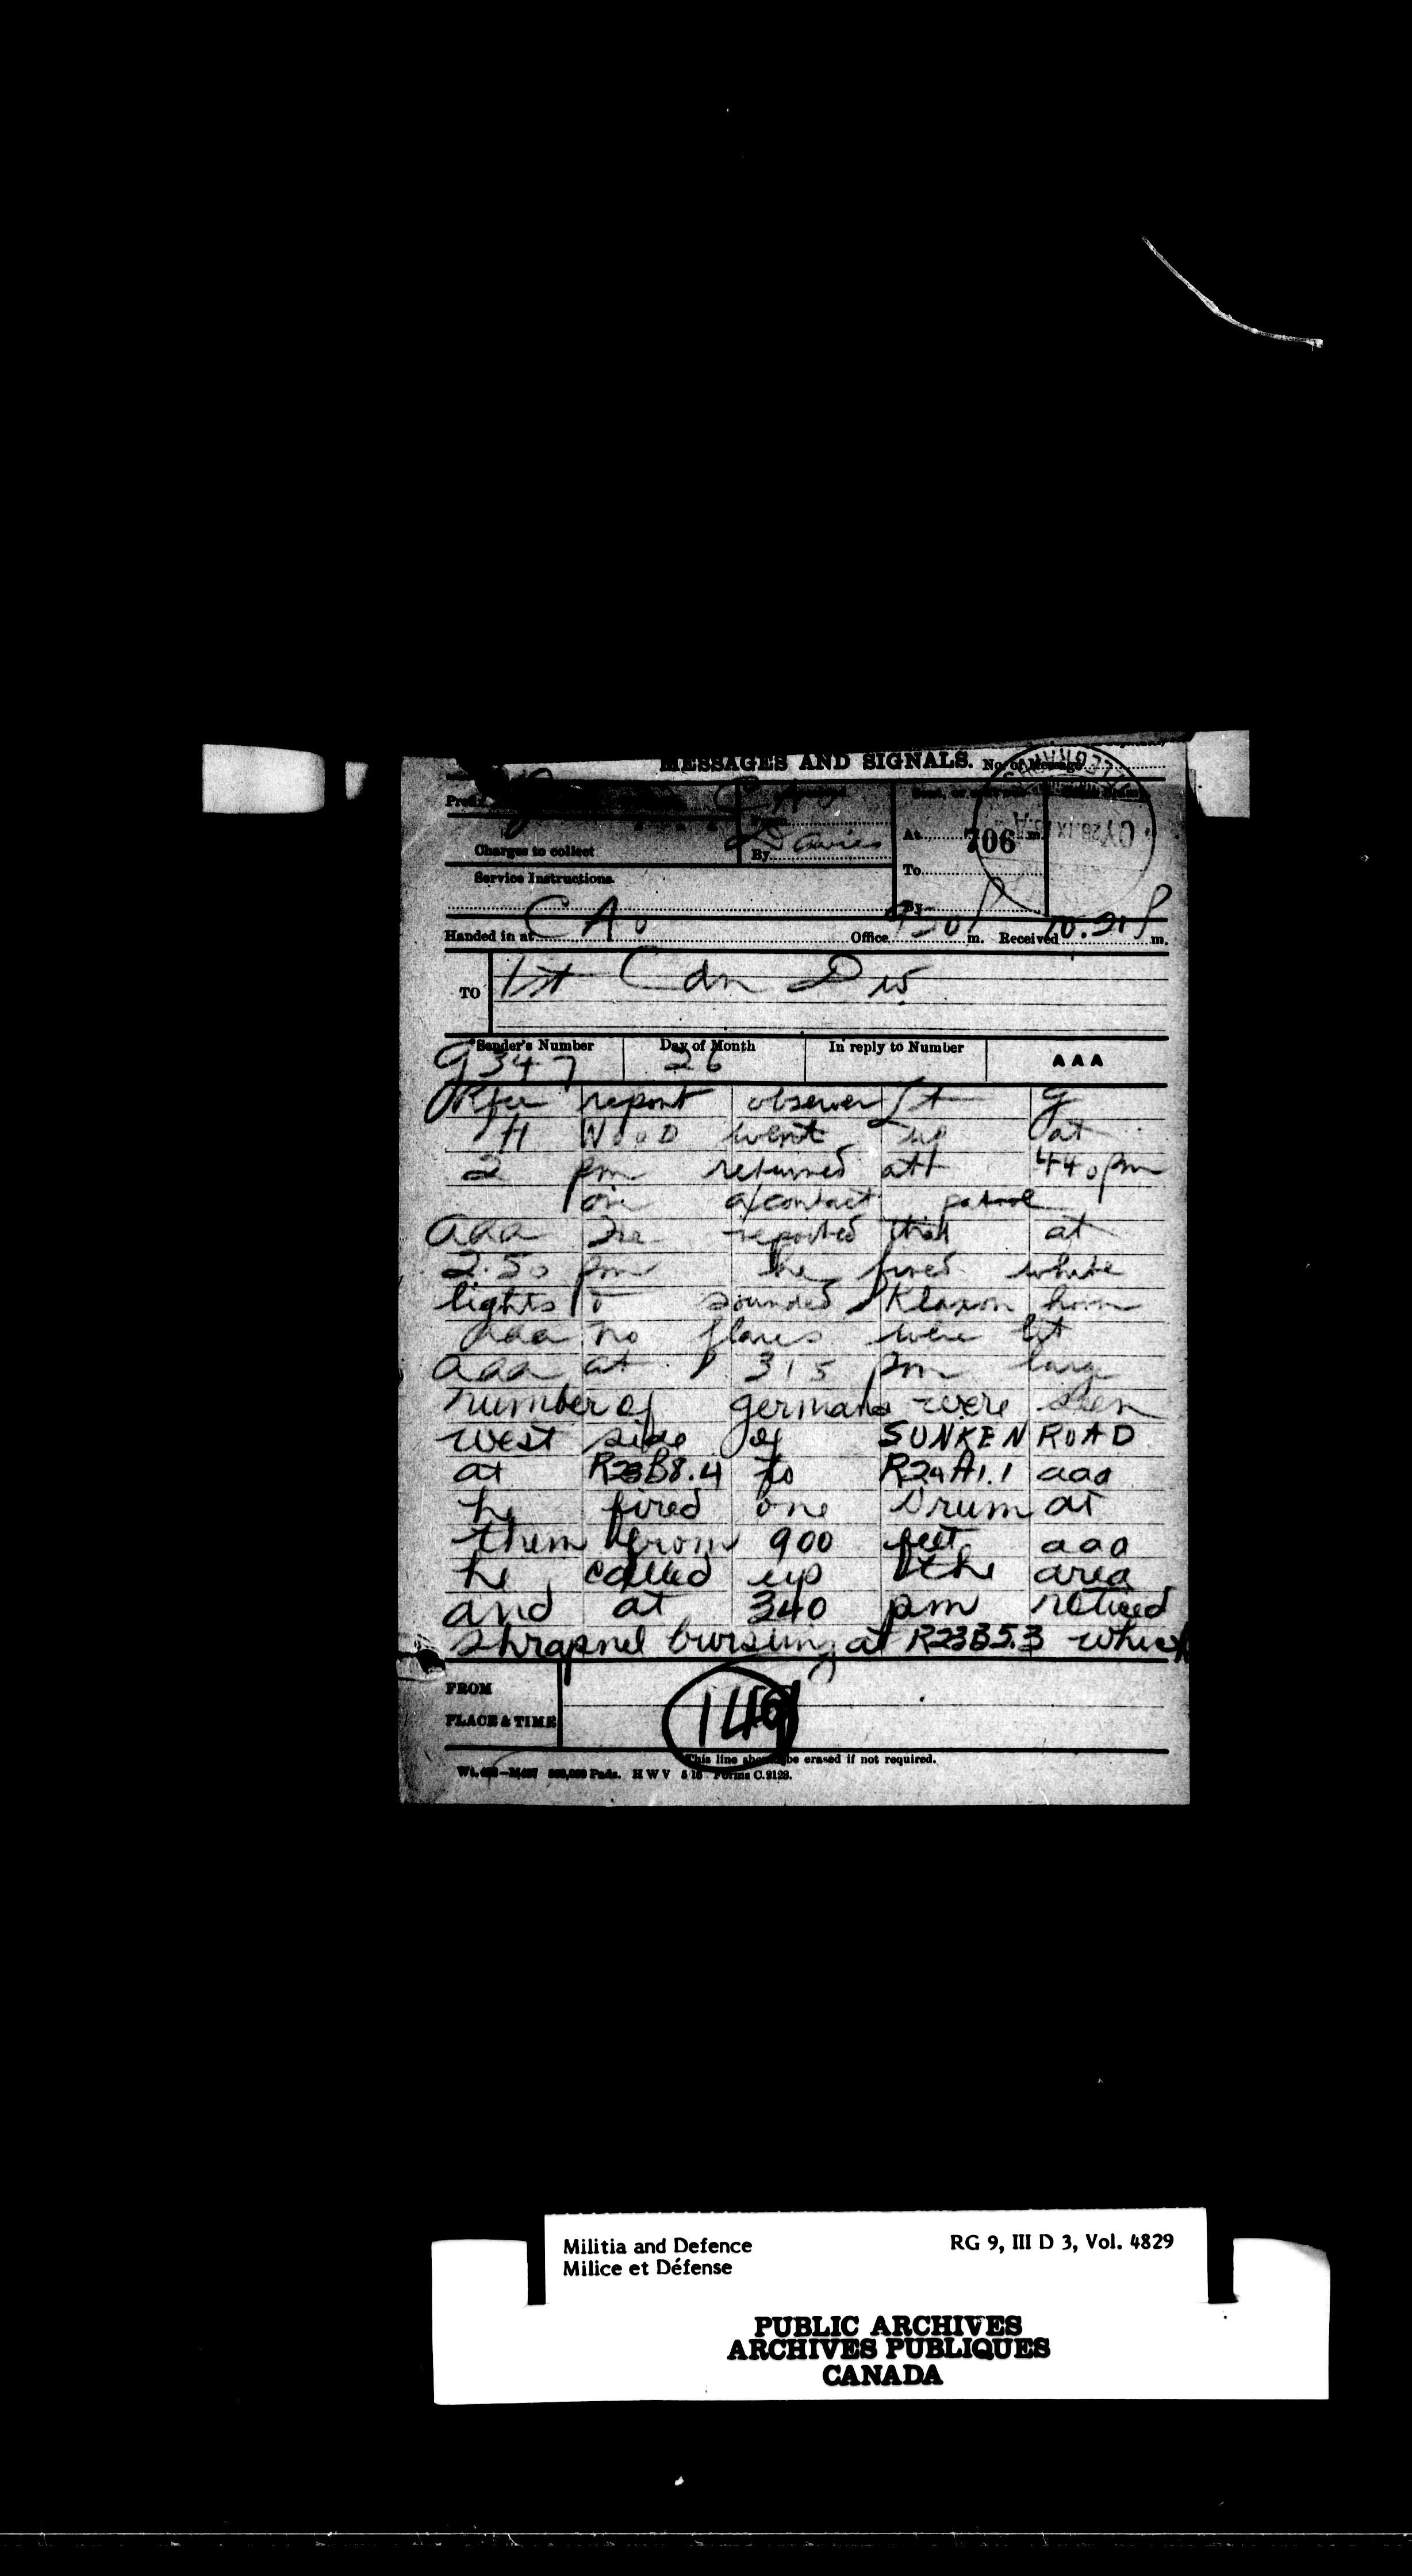 MESSAGES AND SIGNALS. No. of Message
Charges to collect
By Davies
At 706 m.
To
By
Service Instructions.
CAo
Handed in at Office 930 P m. Received 10.21 P m.
TO 1st Can Div
Sender's Number Day of Month In reply to Number AAA
G347 26
report observer Lt G
H WOOD went up at
2 pm returned att 440 pm
on a/contact patrol
aaa He reported that at
2.50 pm he fired white
lights & sounded Klaxon horn
aaa no flares were lit
aaa at 315 pm larg
number of germans were seen
west side of SUNKEN ROAD
at R23B8.4 to R24A1.1 aaa
he fired one Drum at
them from 900 feet aaa
he called up the area
and at 340 pm noticed
shrapnel bursting at R23B5.3 which
FROM
PLACE & TIME
This line should be erased if not required.
Pads. H W V Forms C.2128.
Militia and Defence RG 9, III D 3, Vol. 4829
Milice et Défense
PUBLIC ARCHIVES
ARCHIVES PUBLIQUES
CANADA